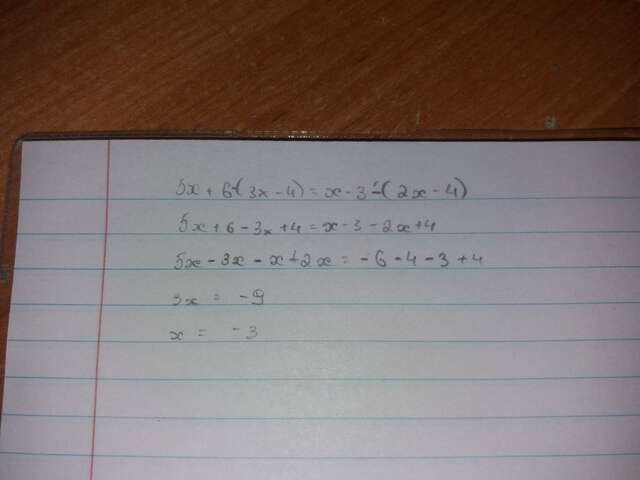 5x + 6-(3x-4) = x-3-(2x-4)
5x + 6 - 3x + 4 = x - 3 - 2x + 4
5x - 3x - x + 2x = -6 - 4 - 3 + 4
3x = -9
x = -3